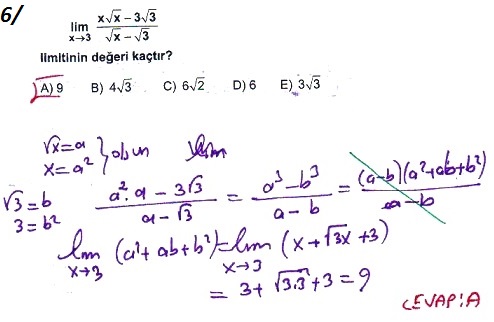 6/
lim x→3 x√x − 3√3 / √x − √3
limitinin değeri kaçtır?
A) 9 B) 4√3 C) 6√2 D) 6 E) 3√3
√x = a
x = a² } olsun lim
√3 = b
3 = b²
a².a − 3√3 / a − √3 = a³ − b³ / a − b = (a−b)(a²+ab+b²) / a−b
lim x→3 (a²+ab+b²) = lim x→3 (x+√3x+3)
= 3+√3.3+3 = 9
CEVAP:A